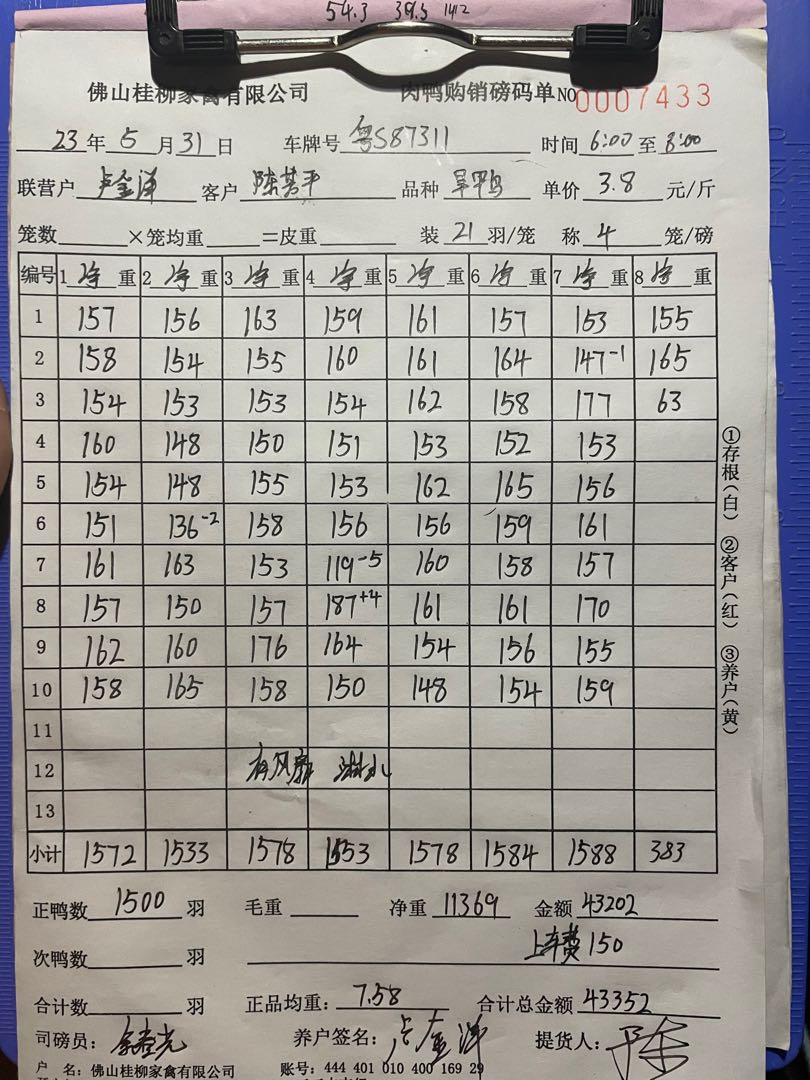 54.3 39.5 1412
佛山桂柳家禽有限公司 肉鸭购销磅码单 NO 0007433
23年5月31日 车牌号 粤S87311 时间 6:00 至 8:00
联营户 卢金洋 客户 陈芳平 品种 旱鸭 单价 3.8 元/斤
笼数 ×笼均重 =皮重 装 21 羽/笼 称 4 笼/磅
编号 1净重 2净重 3净重 4净重 5净重 6净重 7净重 8净重
1 157 156 163 159 161 157 153 155
2 158 154 155 160 161 164 147-1 165
3 154 153 153 154 162 158 177 63
4 160 148 150 151 153 152 153
5 154 148 155 153 162 165 156
6 151 136-2 158 156 156 159 161
7 161 163 153 119-5 160 158 157
8 157 150 157 187+4 161 161 170
9 162 160 176 164 154 156 155
10 158 165 158 150 148 154 159
11
12 有风扇 淋水
13
小计 1572 1533 1578 1553 1578 1584 1588 383
①存根(白) ②客户(红) ③养户(黄)
正鸭数 1500 羽 毛重 净重 11369 金额 43202
次鸭数 羽 上车费 150
合计数 羽 正品均重: 7.58 合计总金额 43352
司磅员: 养户签名: 卢金洋 提货人: 陈
户 名: 佛山桂柳家禽有限公司 账号: 444 401 010 400 169 29